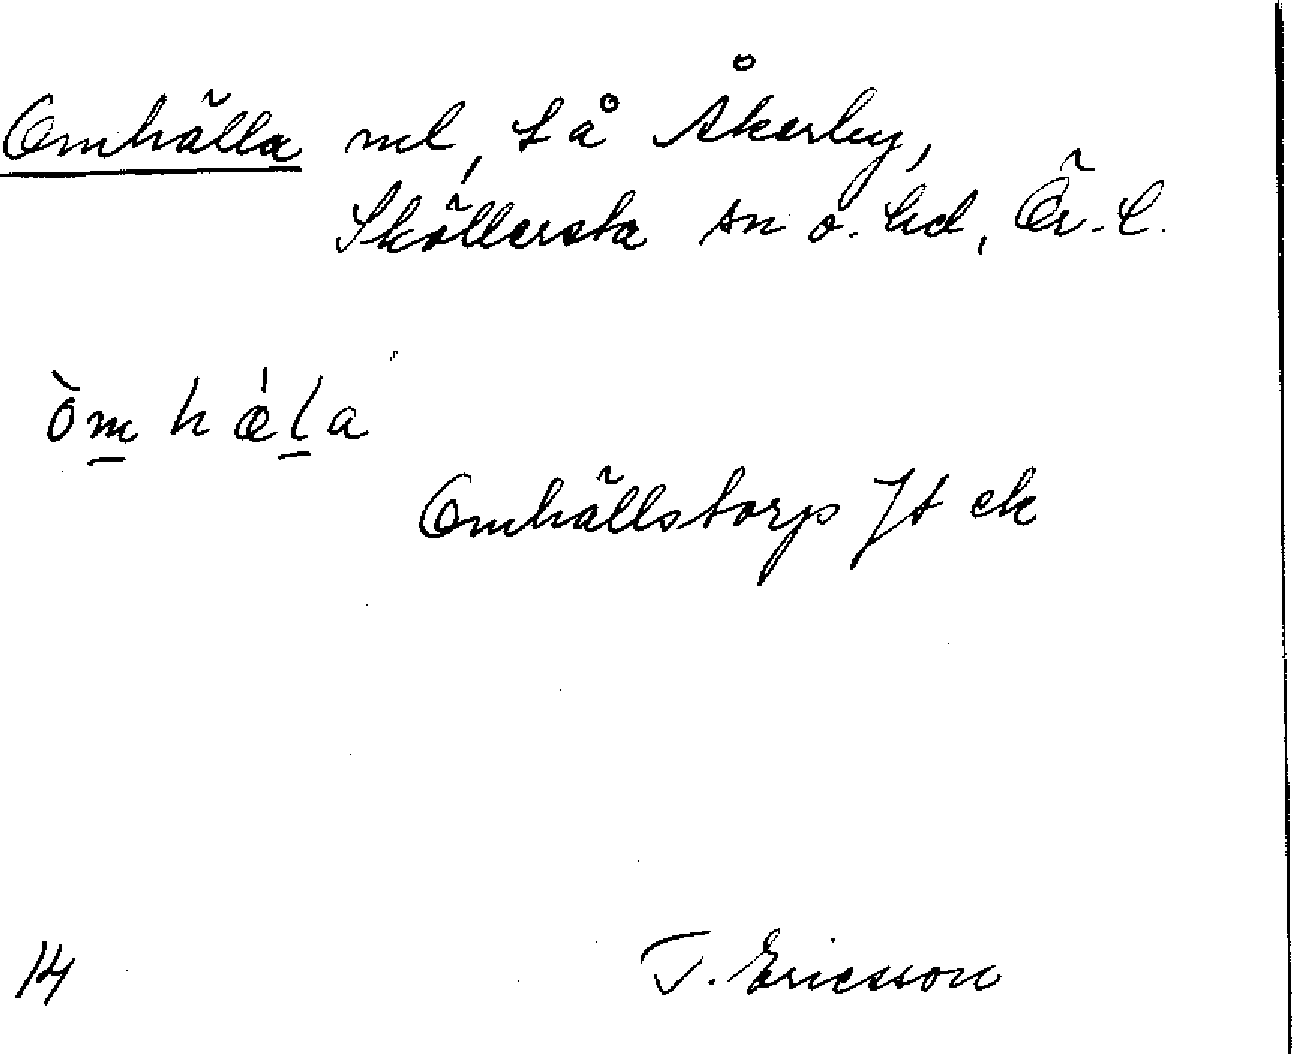 Omhälla ml, Lå Åkerby,
Sköllersta sn o. hd, Ör. l.
òm hæ̍la
Omhällstorp Jt ek
14
T. Ericsson